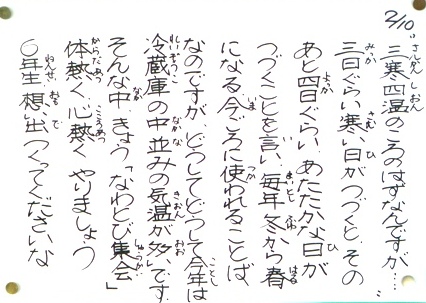 2/10
"三寒四温のころのはずなんですが……"
三日ぐらい寒い日がつづくと、その
あと四日ぐらい、あたたかな日が
つづくことを言い、毎年冬から春
になる今ごろに使われることば
なのですが、どうしてどうして今年は
冷蔵庫の中並みの気温が多いです。
そんな中、きょう「なわとび集会」
体熱く、心熱くやりましょう
6年生、想い出、つくってくださいな